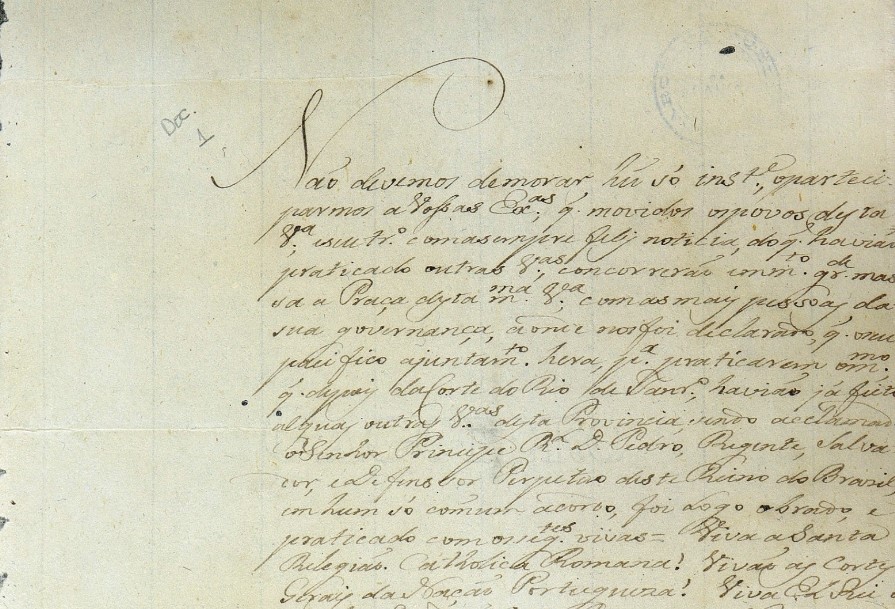 Doc.
1
Não devemos demorar hũ só inst.e, oparteci
parmos a Vossas Ex.as, q. movidos ospovos desta
V.a, eseu tr.o comasempre felis noticia, do q. havião
praticado outras V.as, concorrerão em m.to gr.de mas
sa a Praça desta m.ma V.a, comasmais pessoas da
sua governança, aonde nosfoi declarado, q. oseu
pacifico ajuntam.to hera, p.a praticarem om.mo
q. depois daCorte do Rio de Janr.o, havião já feito
alguas outras V.as desta Provincia, sendo acclamado
oSenhor Principe R.l D. Pedro, Regente, Salva
dor, e Defensor Perpetuo deste Reino do Brazil
emhum só comum acordo, foi logo obrado, e
praticado comosseg.tes vivas = Viva aSanta
Relegião Catholica Romana! Vivão as Cortes
Gerais da Nação Portugueza! Viva El Rei